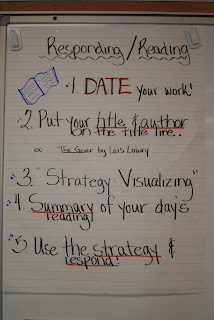 Responding/Reading
1. DATE your work!
2. Put your title & author
on the title line..
ex: The Giver by Lois Lowry
3. "Strategy: Visualizing"
4 Summary of your day's
reading!
5 Use the strategy &
respond!